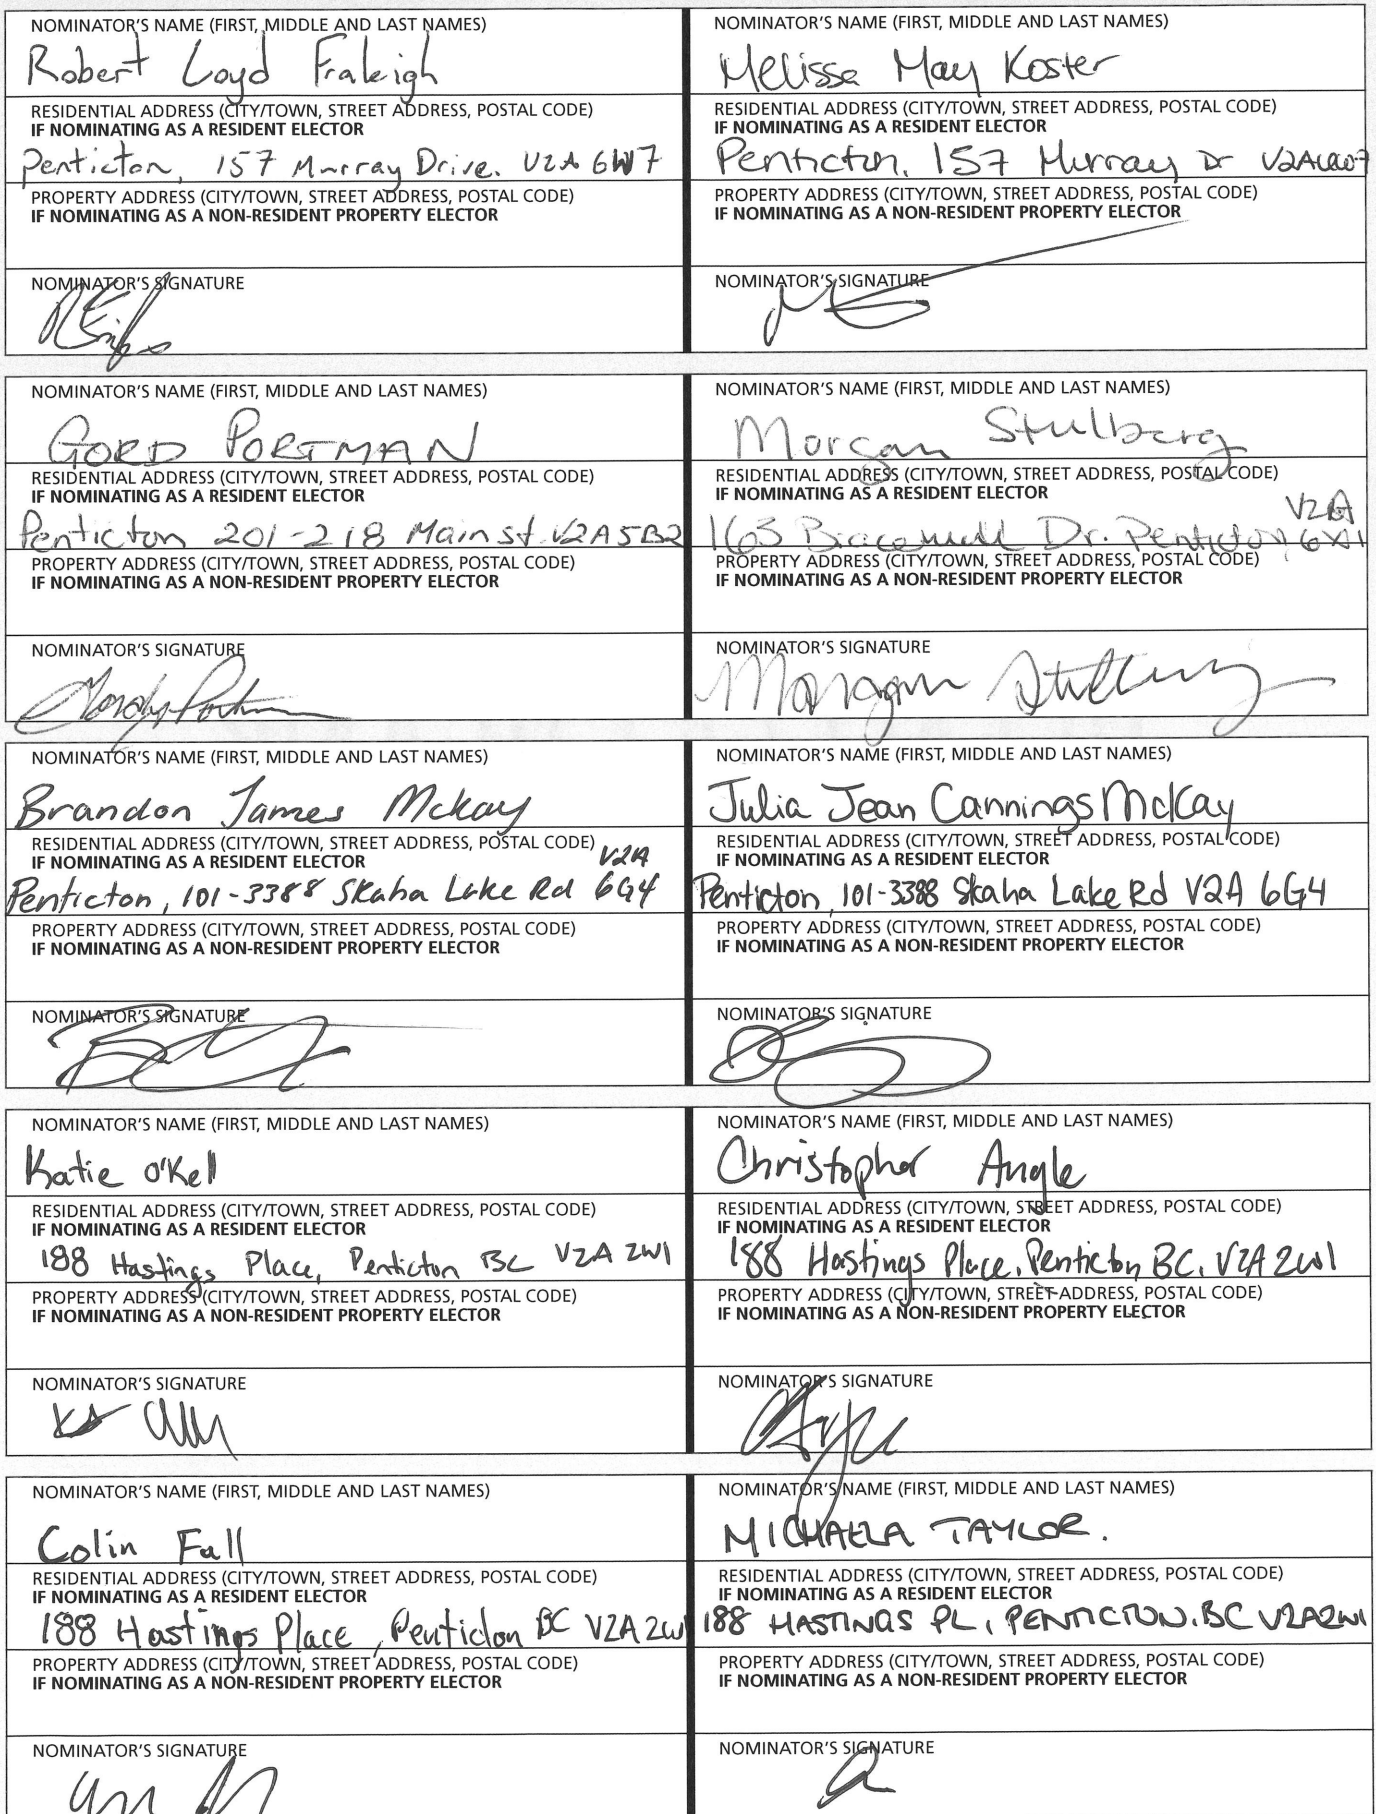 NOMINATOR'S NAME (FIRST, MIDDLE AND LAST NAMES)
Robert Loyd Fraleigh
RESIDENTIAL ADDRESS (CITY/TOWN, STREET ADDRESS, POSTAL CODE)
IF NOMINATING AS A RESIDENT ELECTOR
Penticton, 157 Murray Drive. V2A 6W7
PROPERTY ADDRESS (CITY/TOWN, STREET ADDRESS, POSTAL CODE)
IF NOMINATING AS A NON-RESIDENT PROPERTY ELECTOR
NOMINATOR'S SIGNATURE
NOMINATOR'S NAME (FIRST, MIDDLE AND LAST NAMES)
Melissa May Koster
RESIDENTIAL ADDRESS (CITY/TOWN, STREET ADDRESS, POSTAL CODE)
IF NOMINATING AS A RESIDENT ELECTOR
Penticton, 157 Murray Dr V2A6W7
PROPERTY ADDRESS (CITY/TOWN, STREET ADDRESS, POSTAL CODE)
IF NOMINATING AS A NON-RESIDENT PROPERTY ELECTOR
NOMINATOR'S SIGNATURE
NOMINATOR'S NAME (FIRST, MIDDLE AND LAST NAMES)
GORD PORTMAN
RESIDENTIAL ADDRESS (CITY/TOWN, STREET ADDRESS, POSTAL CODE)
IF NOMINATING AS A RESIDENT ELECTOR
Penticton 201-218 Main st. V2A5B2
PROPERTY ADDRESS (CITY/TOWN, STREET ADDRESS, POSTAL CODE)
IF NOMINATING AS A NON-RESIDENT PROPERTY ELECTOR
NOMINATOR'S SIGNATURE
NOMINATOR'S NAME (FIRST, MIDDLE AND LAST NAMES)
Morgan Stulberg
RESIDENTIAL ADDRESS (CITY/TOWN, STREET ADDRESS, POSTAL CODE)
IF NOMINATING AS A RESIDENT ELECTOR
163 Dr. Penticton V2A
PROPERTY ADDRESS (CITY/TOWN, STREET ADDRESS, POSTAL CODE)
IF NOMINATING AS A NON-RESIDENT PROPERTY ELECTOR
NOMINATOR'S SIGNATURE
Morgan Stulberg
NOMINATOR'S NAME (FIRST, MIDDLE AND LAST NAMES)
Brandon James McKay
RESIDENTIAL ADDRESS (CITY/TOWN, STREET ADDRESS, POSTAL CODE)
IF NOMINATING AS A RESIDENT ELECTOR
Penticton, 101-3388 Skaha Lake Rd V2A 6G4
PROPERTY ADDRESS (CITY/TOWN, STREET ADDRESS, POSTAL CODE)
IF NOMINATING AS A NON-RESIDENT PROPERTY ELECTOR
NOMINATOR'S SIGNATURE
NOMINATOR'S NAME (FIRST, MIDDLE AND LAST NAMES)
Julia Jean Cannings McKay
RESIDENTIAL ADDRESS (CITY/TOWN, STREET ADDRESS, POSTAL CODE)
IF NOMINATING AS A RESIDENT ELECTOR
Penticton, 101-3388 Skaha Lake Rd V2A 6G4
PROPERTY ADDRESS (CITY/TOWN, STREET ADDRESS, POSTAL CODE)
IF NOMINATING AS A NON-RESIDENT PROPERTY ELECTOR
NOMINATOR'S SIGNATURE
NOMINATOR'S NAME (FIRST, MIDDLE AND LAST NAMES)
Katie O'Kell
RESIDENTIAL ADDRESS (CITY/TOWN, STREET ADDRESS, POSTAL CODE)
IF NOMINATING AS A RESIDENT ELECTOR
188 Hastings Place, Penticton BC V2A 2W1
PROPERTY ADDRESS (CITY/TOWN, STREET ADDRESS, POSTAL CODE)
IF NOMINATING AS A NON-RESIDENT PROPERTY ELECTOR
NOMINATOR'S SIGNATURE
NOMINATOR'S NAME (FIRST, MIDDLE AND LAST NAMES)
Christopher Angle
RESIDENTIAL ADDRESS (CITY/TOWN, STREET ADDRESS, POSTAL CODE)
IF NOMINATING AS A RESIDENT ELECTOR
188 Hastings Place, Penticton BC, V2A 2W1
PROPERTY ADDRESS (CITY/TOWN, STREET ADDRESS, POSTAL CODE)
IF NOMINATING AS A NON-RESIDENT PROPERTY ELECTOR
NOMINATOR'S SIGNATURE
NOMINATOR'S NAME (FIRST, MIDDLE AND LAST NAMES)
Colin Fall
RESIDENTIAL ADDRESS (CITY/TOWN, STREET ADDRESS, POSTAL CODE)
IF NOMINATING AS A RESIDENT ELECTOR
188 Hastings Place, Penticton BC V2A 2W1
PROPERTY ADDRESS (CITY/TOWN, STREET ADDRESS, POSTAL CODE)
IF NOMINATING AS A NON-RESIDENT PROPERTY ELECTOR
NOMINATOR'S SIGNATURE
NOMINATOR'S NAME (FIRST, MIDDLE AND LAST NAMES)
MICHAELA TAYLOR.
RESIDENTIAL ADDRESS (CITY/TOWN, STREET ADDRESS, POSTAL CODE)
IF NOMINATING AS A RESIDENT ELECTOR
188 HASTINGS PL, PENTICTON, BC V2A2W1
PROPERTY ADDRESS (CITY/TOWN, STREET ADDRESS, POSTAL CODE)
IF NOMINATING AS A NON-RESIDENT PROPERTY ELECTOR
NOMINATOR'S SIGNATURE